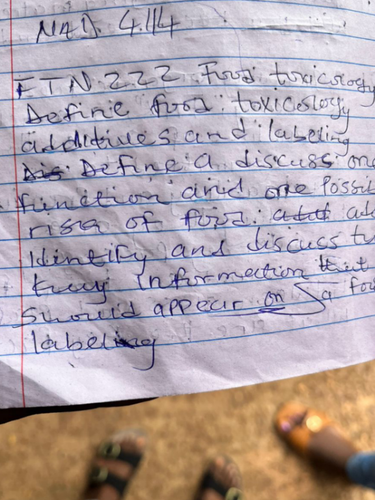 NAD. 4.114
FTN.222 Food toxicology
Define food toxicology
additives and labeling
Define a discuss one
function and one Possi
risk of food ad
Identify and discuss t
key information that
should appear on a fo
labeling